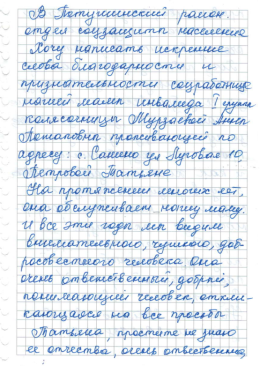 В Петушинский район.
отдел соцзащиты населения
Хочу написать искренние
слова благодарности и
признательности соцработнице
нашей мамы инвалида I группы
колясочницы Мурзаевой Анны
Потаповны проживающей по
адресу: с. Санино ул Луговая 10,
Петровой Татьяне
На протяжении многих лет,
она обслуживает нашу маму.
И все эти годы мы видим
внимательного, чуткого, доб-
росовестного человека Она
очень ответственный, добрый,
понимающий человек, откли-
кающаяся на все просьбы
Татьяна, простите не знаю
ее отчества, очень ответственна,